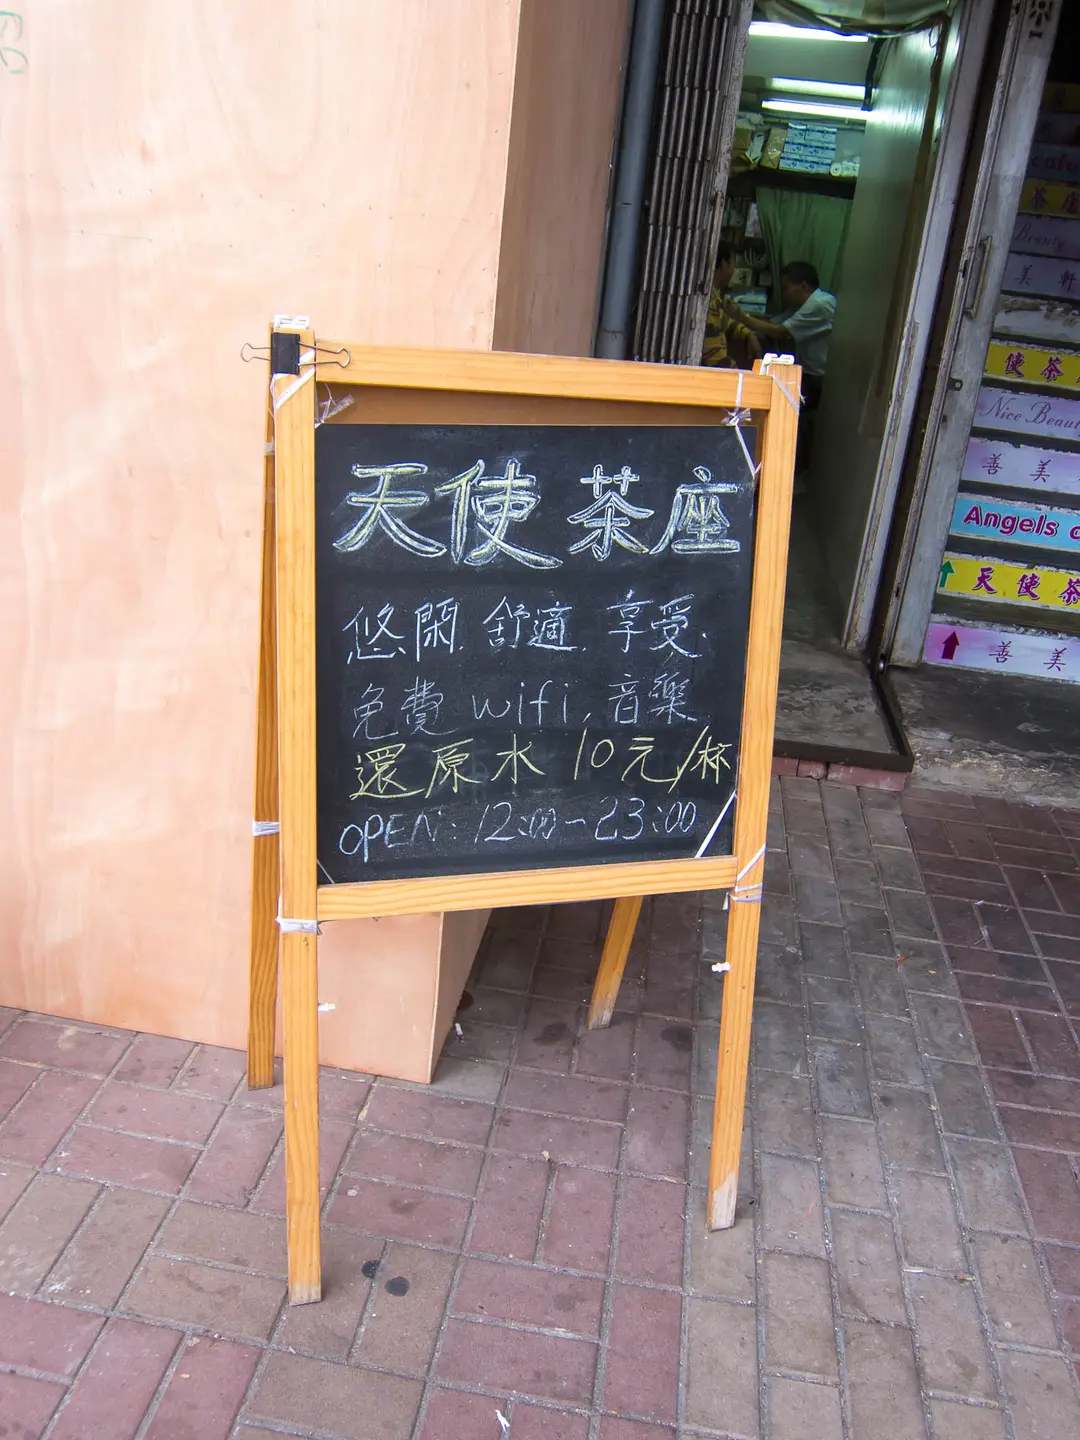 天使茶座
悠閑.舒適.享受.
免費 wifi, 音樂
還原水 10元/杯
OPEN: 12:00-23:00
Beauty
美軒
使茶
Nice Beau
善美
Angels
天使茶
善美